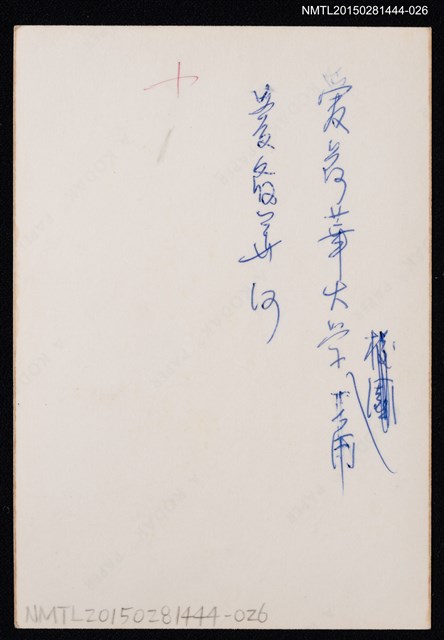 NMTL20150281444-026
十
愛荷華大學校園
愛荷華河
NMTL20150281444-026